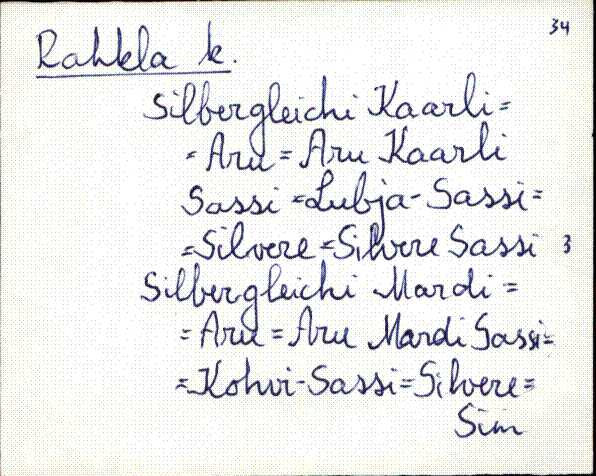 34
Rahkla k.
Silbergleichi Kaarli =
= Aru = Aru Kaarli
Sassi = Lubja-Sassi =
= Silvere = Silvere Sassi 3
Silbergleichi Mardi =
= Aru = Aru Mardi Sassi =
= Kohvi-Sassi = Silvere =
Sim